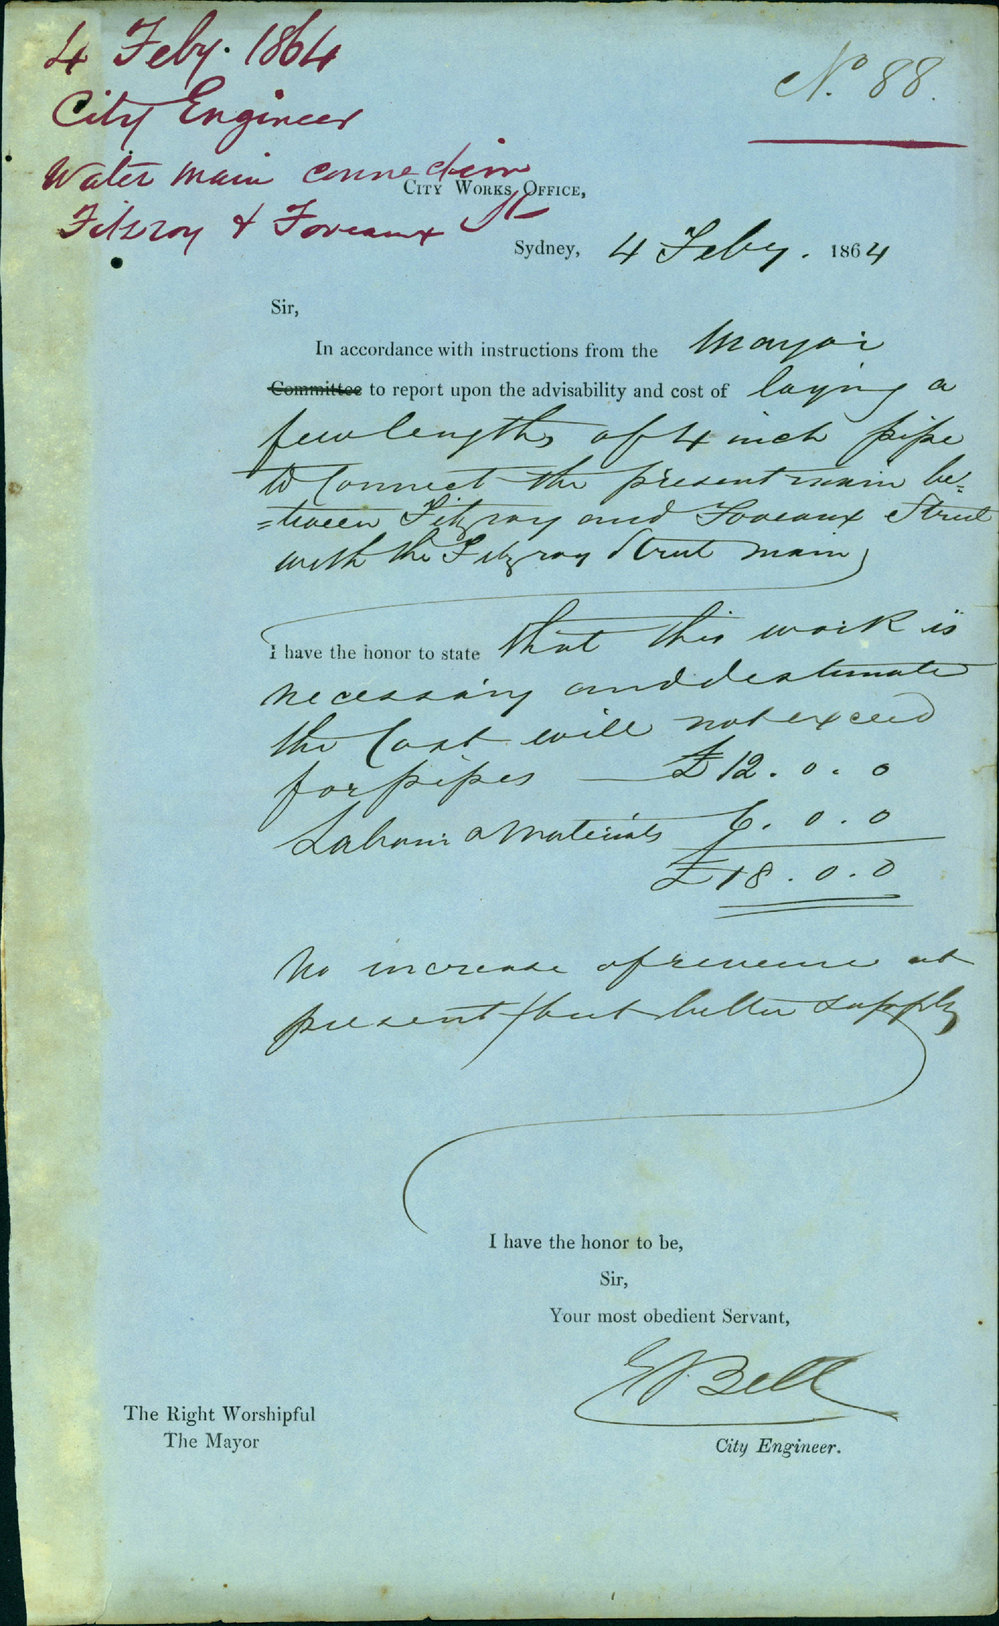 4 Feby. 1864
City Engineer
Water main connection
Fitzroy & Foveaux St
No. 88.
City Works Office,
Sydney, 4 Feby. 1864
Sir,
In accordance with instructions from the Mayor
Committee to report upon the advisability and cost of laying a
few lengths of 4 inch pipe
to Connect the present main be=
=tween Fitzroy and Foveaux Street
with the Fitzroy Street main
I have the honor to state that this work is
necessary and I estimate
the Cost will not exceed
for pipes — £12.0.0
Labour & Materials 6.0.0
£18.0.0
No increase of revenue at
present / but better supply
I have the honor to be,
Sir,
Your most obedient Servant,
E Bell
City Engineer.
The Right Worshipful
The Mayor